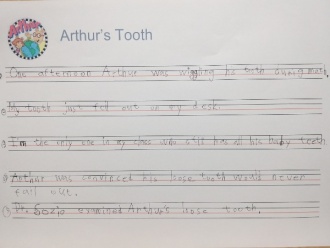 Arthur
Arthur's Tooth
One afternoon Arthur was wiggling his tooth during math.
My tooth just fell out on my desk.
I'm the only one in my class who still has all his baby teeth
Arthur was convinced his loose tooth would never
fall out.
Dr. Sozio examined Arthur's loose tooth.